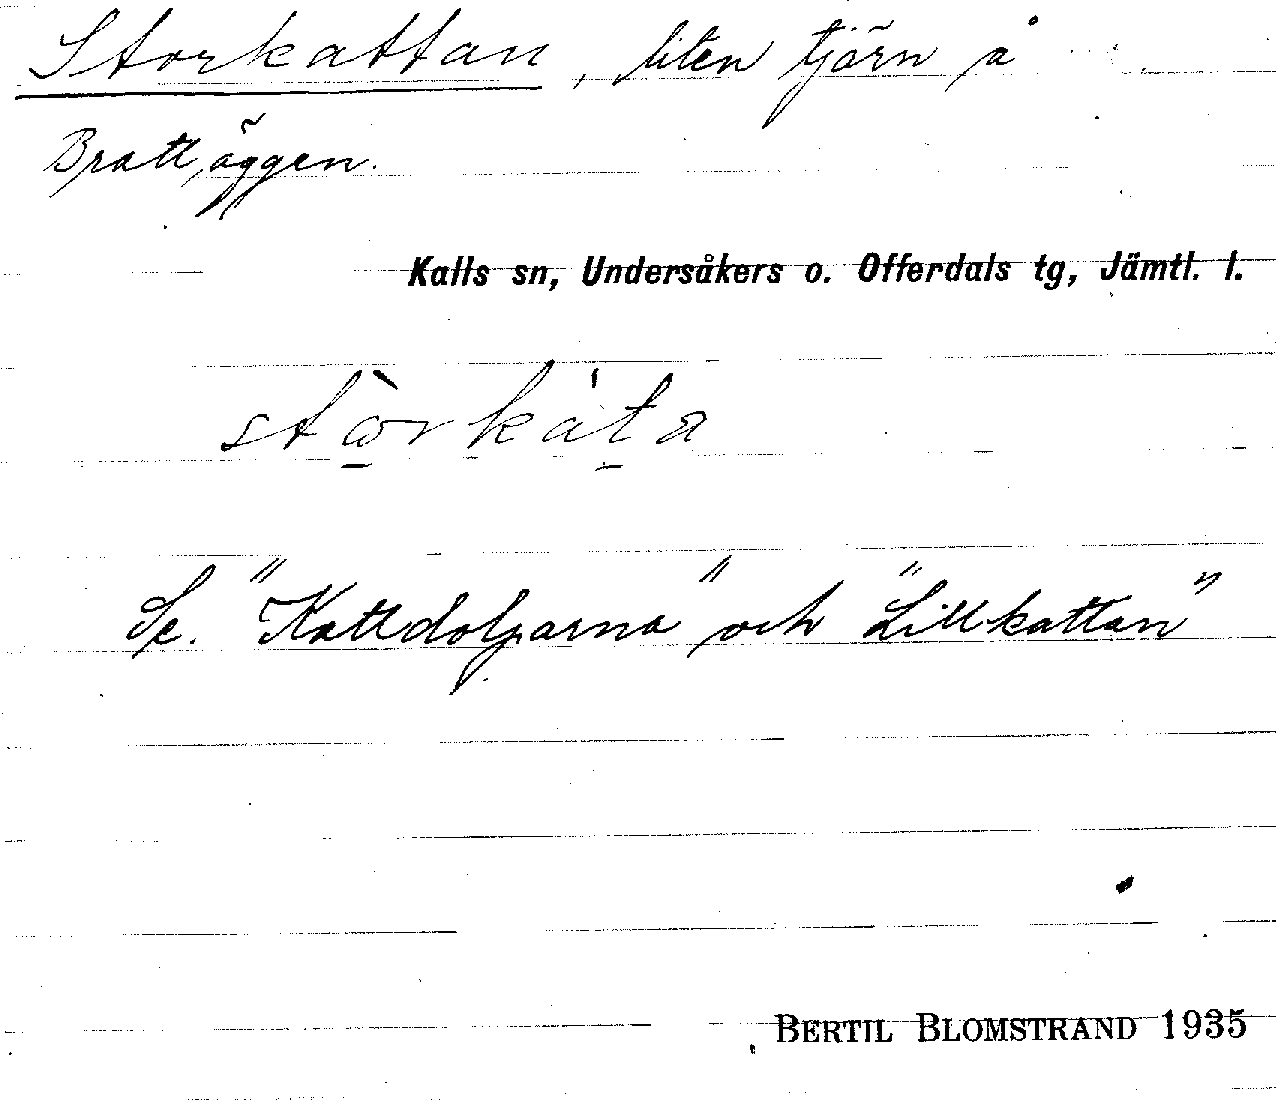 Storkattan, liten tjärn å
Brattäggen.
Kalls sn, Undersåkers o. Offerdals tg, Jämtl. l.
stò̱rká̱ta
Se. "Kattdoljarna" och "Lillkattan"
BERTIL BLOMSTRAND 1935